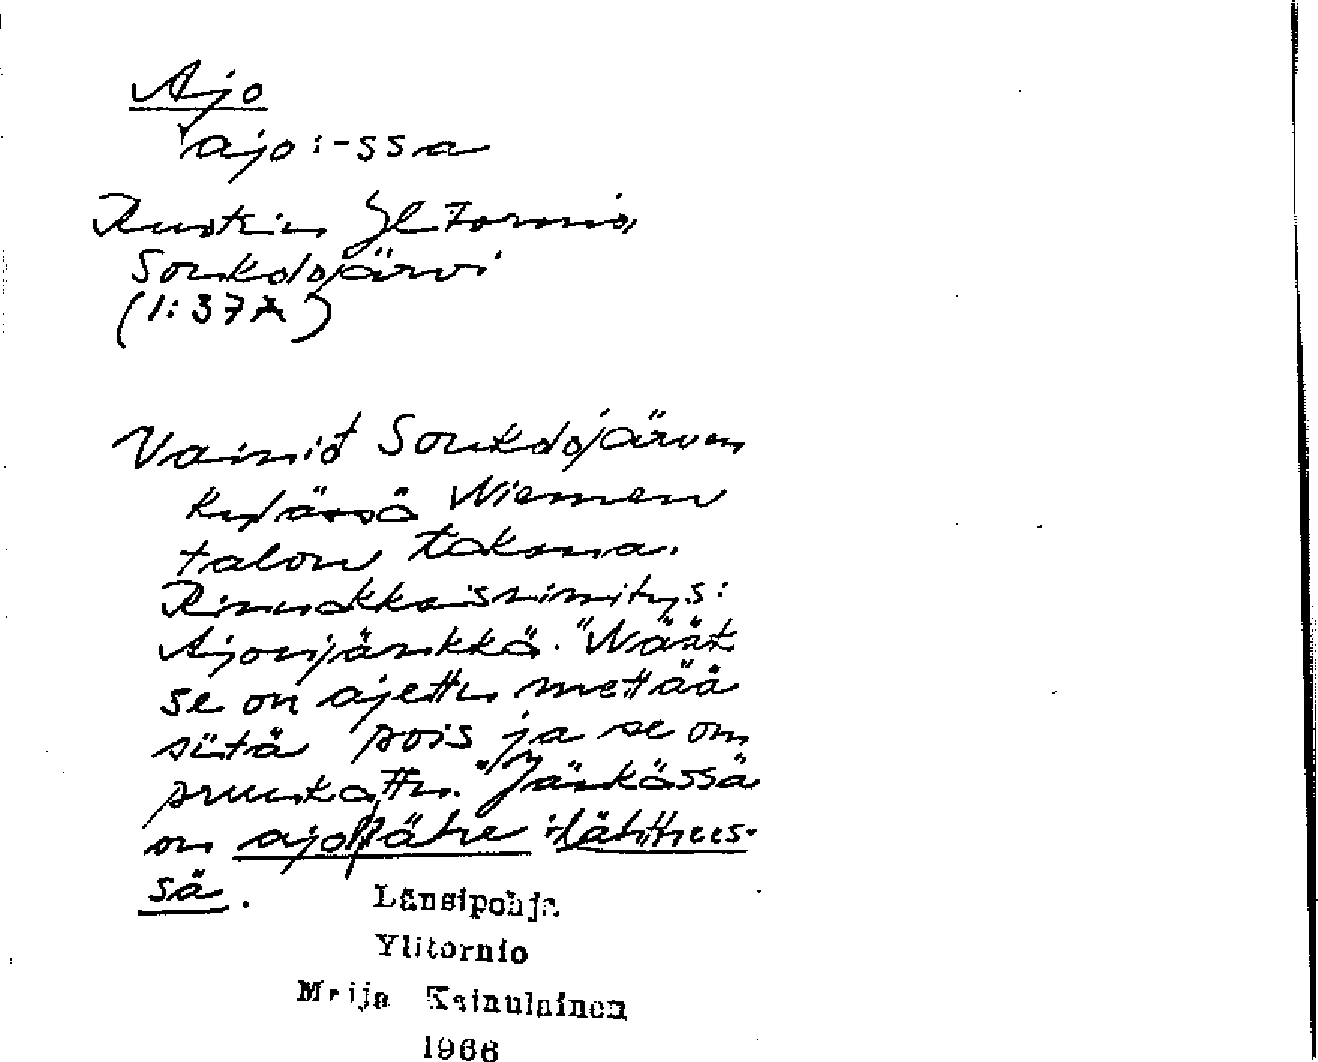 Ajo
'ajo:-ssa
Ruotsin Ylitornio,
Soukolojärvi
(1:37A)
Vainiot Soukolojärven
kylässä Niemen
talon takana.
Rinnakkaisnimitys:
Ajonijänkkä. "Näät
se on ajettu mettää
siitä pois ja se on
pruukattu." Jänkässä
on ajo lähtees-
sä.
Länsipohja
Ylitornio
Meija Kainulainen
1966